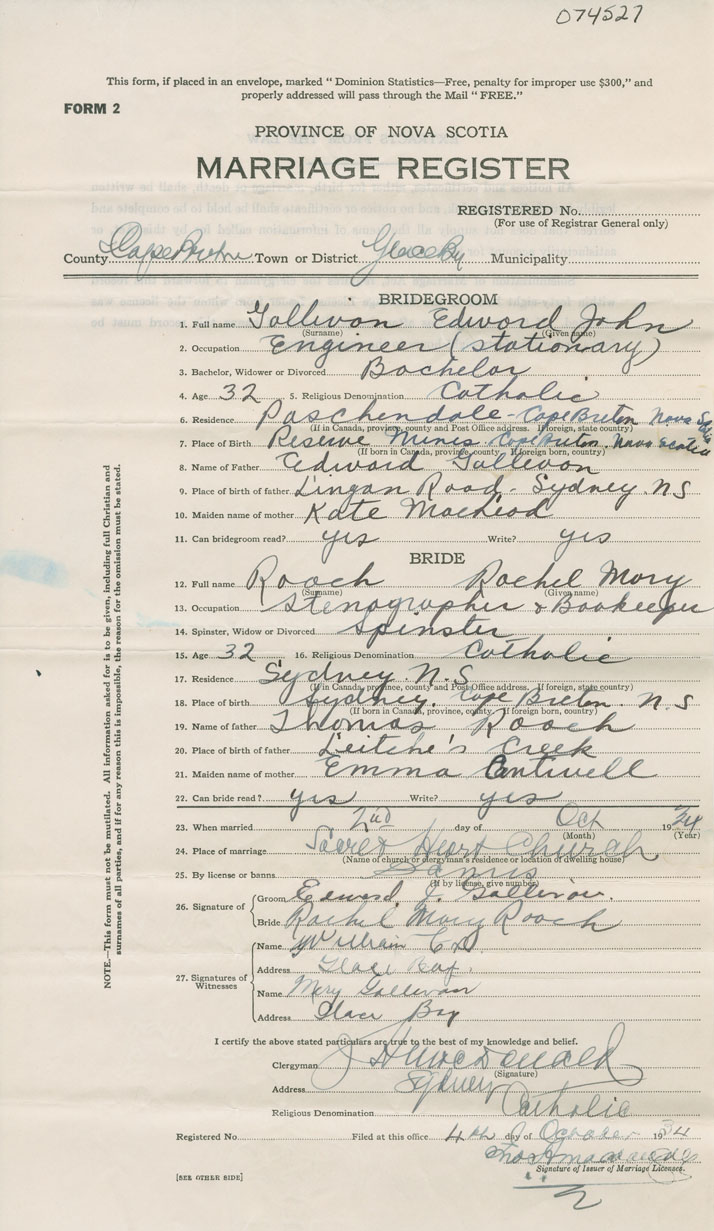 074527
This form, if placed in an envelope, marked “ Dominion Statistics—Free, penalty for improper use $300,” and
properly addressed will pass through the Mail “ FREE.”
FORM 2
PROVINCE OF NOVA SCOTIA
MARRIAGE REGISTER
REGISTERED No.
(For use of Registrar General only)
County Cape Breton Town or District Glace Bay Municipality
BRIDEGROOM
1. Full name Gallivan Edward John
(Surname) (Given name)
2. Occupation Engineer (stationary)
3. Bachelor, Widower or Divorced Bachelor
4. Age 32 5. Religious Denomination Catholic
6. Residence Paschendale - Cape Breton Nova
(If in Canada, province, county and Post Office address. If foreign, state country)
7. Place of Birth Reserve Mines Cape Breton, Nova Scotia
(If born in Canada, province, county. If foreign born, country)
8. Name of Father Edward Gallivan
9. Place of birth of father Lingan Road - Sydney. N S
10. Maiden name of mother Kate MacLeod
11. Can bridegroom read? yes Write? yes
BRIDE
12. Full name Roach Rachel Mary
(Surname) (Given name)
13. Occupation Stenographer & Bookeeper
14. Spinster, Widow or Divorced Spinster
15. Age 32 16. Religious Denomination Catholic
17. Residence Sydney. N. S
(If in Canada, province, county and Post Office address. If foreign, state country)
18. Place of birth Sydney. Cape Breton. N. S
(If born in Canada, province, county. If foreign born, country)
19. Name of father Thomas Roach
20. Place of birth of father Leitche's Creek
21. Maiden name of mother Emma Cantwell
22. Can bride read? yes Write? yes
23. When married 2nd day of Oct 1934
(Month) (Year)
24. Place of marriage Sacred Heart Church
(Name of church or clergyman's residence or location of dwelling house)
25. By license or banns Banns
(If by license, give number)
26. Signature of Groom Edward J. Gallivan.
Bride Rachel Mary Roach
27. Signatures of Witnesses Name William
Address Glace Bay.
Name Mary Gallivan
Address Glace Bay
I certify the above stated particulars are true to the best of my knowledge and belief.
Clergyman J H MacDonald
(Signature)
Address Sydney
Religious Denomination Catholic
Registered No. Filed at this office 4th day of October 1934
Signature of Issuer of Marriage Licenses.
[SEE OTHER SIDE]
NOTE.—This form must not be mutilated. All information asked for is to be given, including full Christian and
surnames of all parties, and if for any reason this is impossible, the reason for the omission must be stated.